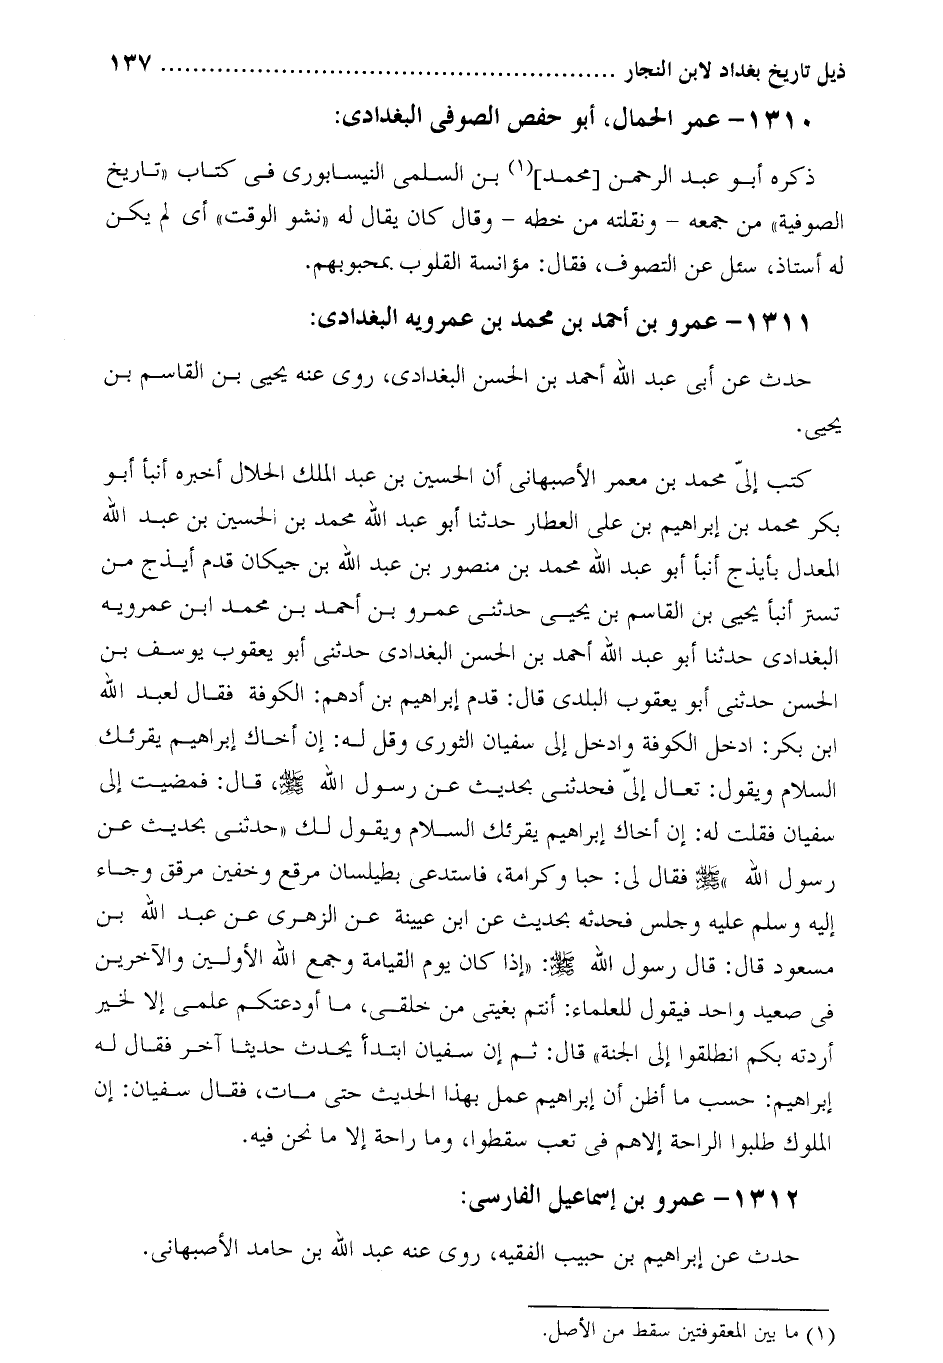 ذيل تاريخ بغداد لابن النجار ........................................................ ١٣٧
١٣١٠- عمر الحمال، أبو حفص الصوفى البغدادى:
ذكره أبو عبد الرحمن [محمد](١) بن السلمى النيسابورى فى كتاب «تاريخ
الصوفية» من جمعه - ونقلته من خطه - وقال كان يقال له «نشو الوقت» أى لم يكن
له أستاذ، سئل عن التصوف، فقال: مؤانسة القلوب بمحبوبهم.
١٣١١- عمرو بن أحمد بن محمد بن عمرويه البغدادى:
حدث عن أبى عبد الله أحمد بن الحسن البغدادى، روى عنه يحيى بن القاسم بن
يحيى.
كتب إلىّ محمد بن معمر الأصبهانى أن الحسين بن عبد الملك الخلال أخبره أنبأ أبو
بكر محمد بن إبراهيم بن على العطار حدثنا أبو عبد الله محمد بن الحسين بن عبد الله
المعدل بأيذج أنبأ أبو عبد الله محمد بن منصور بن عبد الله بن جيكان قدم أيذج من
تستر أنبأ يحيى بن القاسم بن يحيى حدثنى عمرو بن أحمد بن محمد ابن عمرويه
البغدادى حدثنا أبو عبد الله أحمد بن الحسن البغدادى حدثنى أبو يعقوب يوسف بن
الحسن حدثنى أبو يعقوب البلدى قال: قدم إبراهيم بن أدهم: الكوفة فقال لعبد الله
ابن بكر: ادخل الكوفة وادخل إلى سفيان الثورى وقل له: إن أخاك إبراهيم يقرئك
السلام ويقول: تعال إلىّ فحدثنى بحديث عن رسول الله ﷺ، قال: فمضيت إلى
سفيان فقلت له: إن أخاك إبراهيم يقرئك السلام ويقول لك «حدثنى بحديث عن
رسول الله ﷺ» فقال لى: حبا وكرامة، فاستدعى بطيلسان مرقع وخفين مرقق وجاء
إليه وسلم عليه وجلس فحدثه بحديث عن ابن عيينة عن الزهرى عن عبد الله بن
مسعود قال: قال رسول الله ﷺ: «إذا كان يوم القيامة وجمع الله الأولين والآخرين
فى صعيد واحد فيقول للعلماء: أنتم بغيتى من خلقى، ما أودعتكم علمى إلا لخير
أردته بكم انطلقوا إلى الجنة» قال: ثم إن سفيان ابتدأ يحدث حديثا آخر فقال له
إبراهيم: حسب ما أظن أن إبراهيم عمل بهذا الحديث حتى مات، فقال سفيان: إن
الملوك طلبوا الراحة إلاهم فى تعب سقطوا، وما راحة إلا ما نحن فيه.
١٣١٢- عمرو بن إسماعيل الفارسى:
حدث عن إبراهيم بن حبيب الفقيه، روى عنه عبد الله بن حامد الأصبهانى.
(١) ما بين المعقوفتين سقط من الأصل.